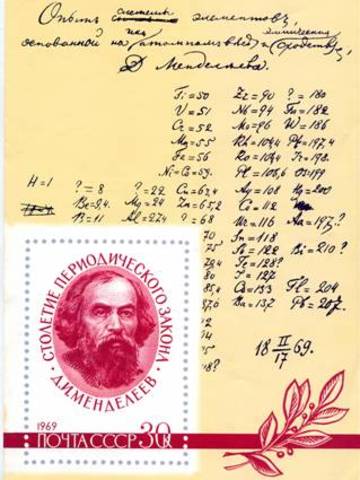 Опытъ системы элементовъ,
основанной на ихъ атомномъ вѣсѣ и химическомъ сходствѣ
Д. Менделѣевъ.
Ti=50 Zr=90 ?=180
V=51 Nb=94 Ta=182
Cr=52 Mo=96 W=186
Mn=55 Rh=104,4 Pt=197,4
Fe=56 Ru=104,4 Ir=198
Ni=Co=59 Pl=106,6 Os=199
H=1 ?=8 ?=22 Cu=63,4 Ag=108 Hg=200
Be=9,4 Mg=24 Zn=65,2 Cd=112
B=11 Al=27,4 ?=68 Ur=116 Au=197?
Sn=118
75 Sb=122 Bi=210?
Te=128?
I=127
85,4 Cs=133 Tl=204
87,6 Ba=137 Pb=207.
18 II/17 69.
СТОЛЕТИЕ ПЕРИОДИЧЕСКОГО ЗАКОНА
Д.И.МЕНДЕЛЕЕВ
1969
ПОЧТА СССР 30к